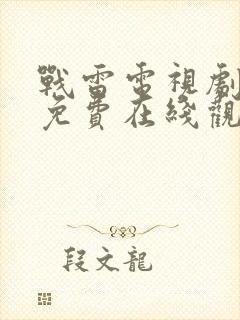 戰雷電視劇
免費在綫觀
段文龍